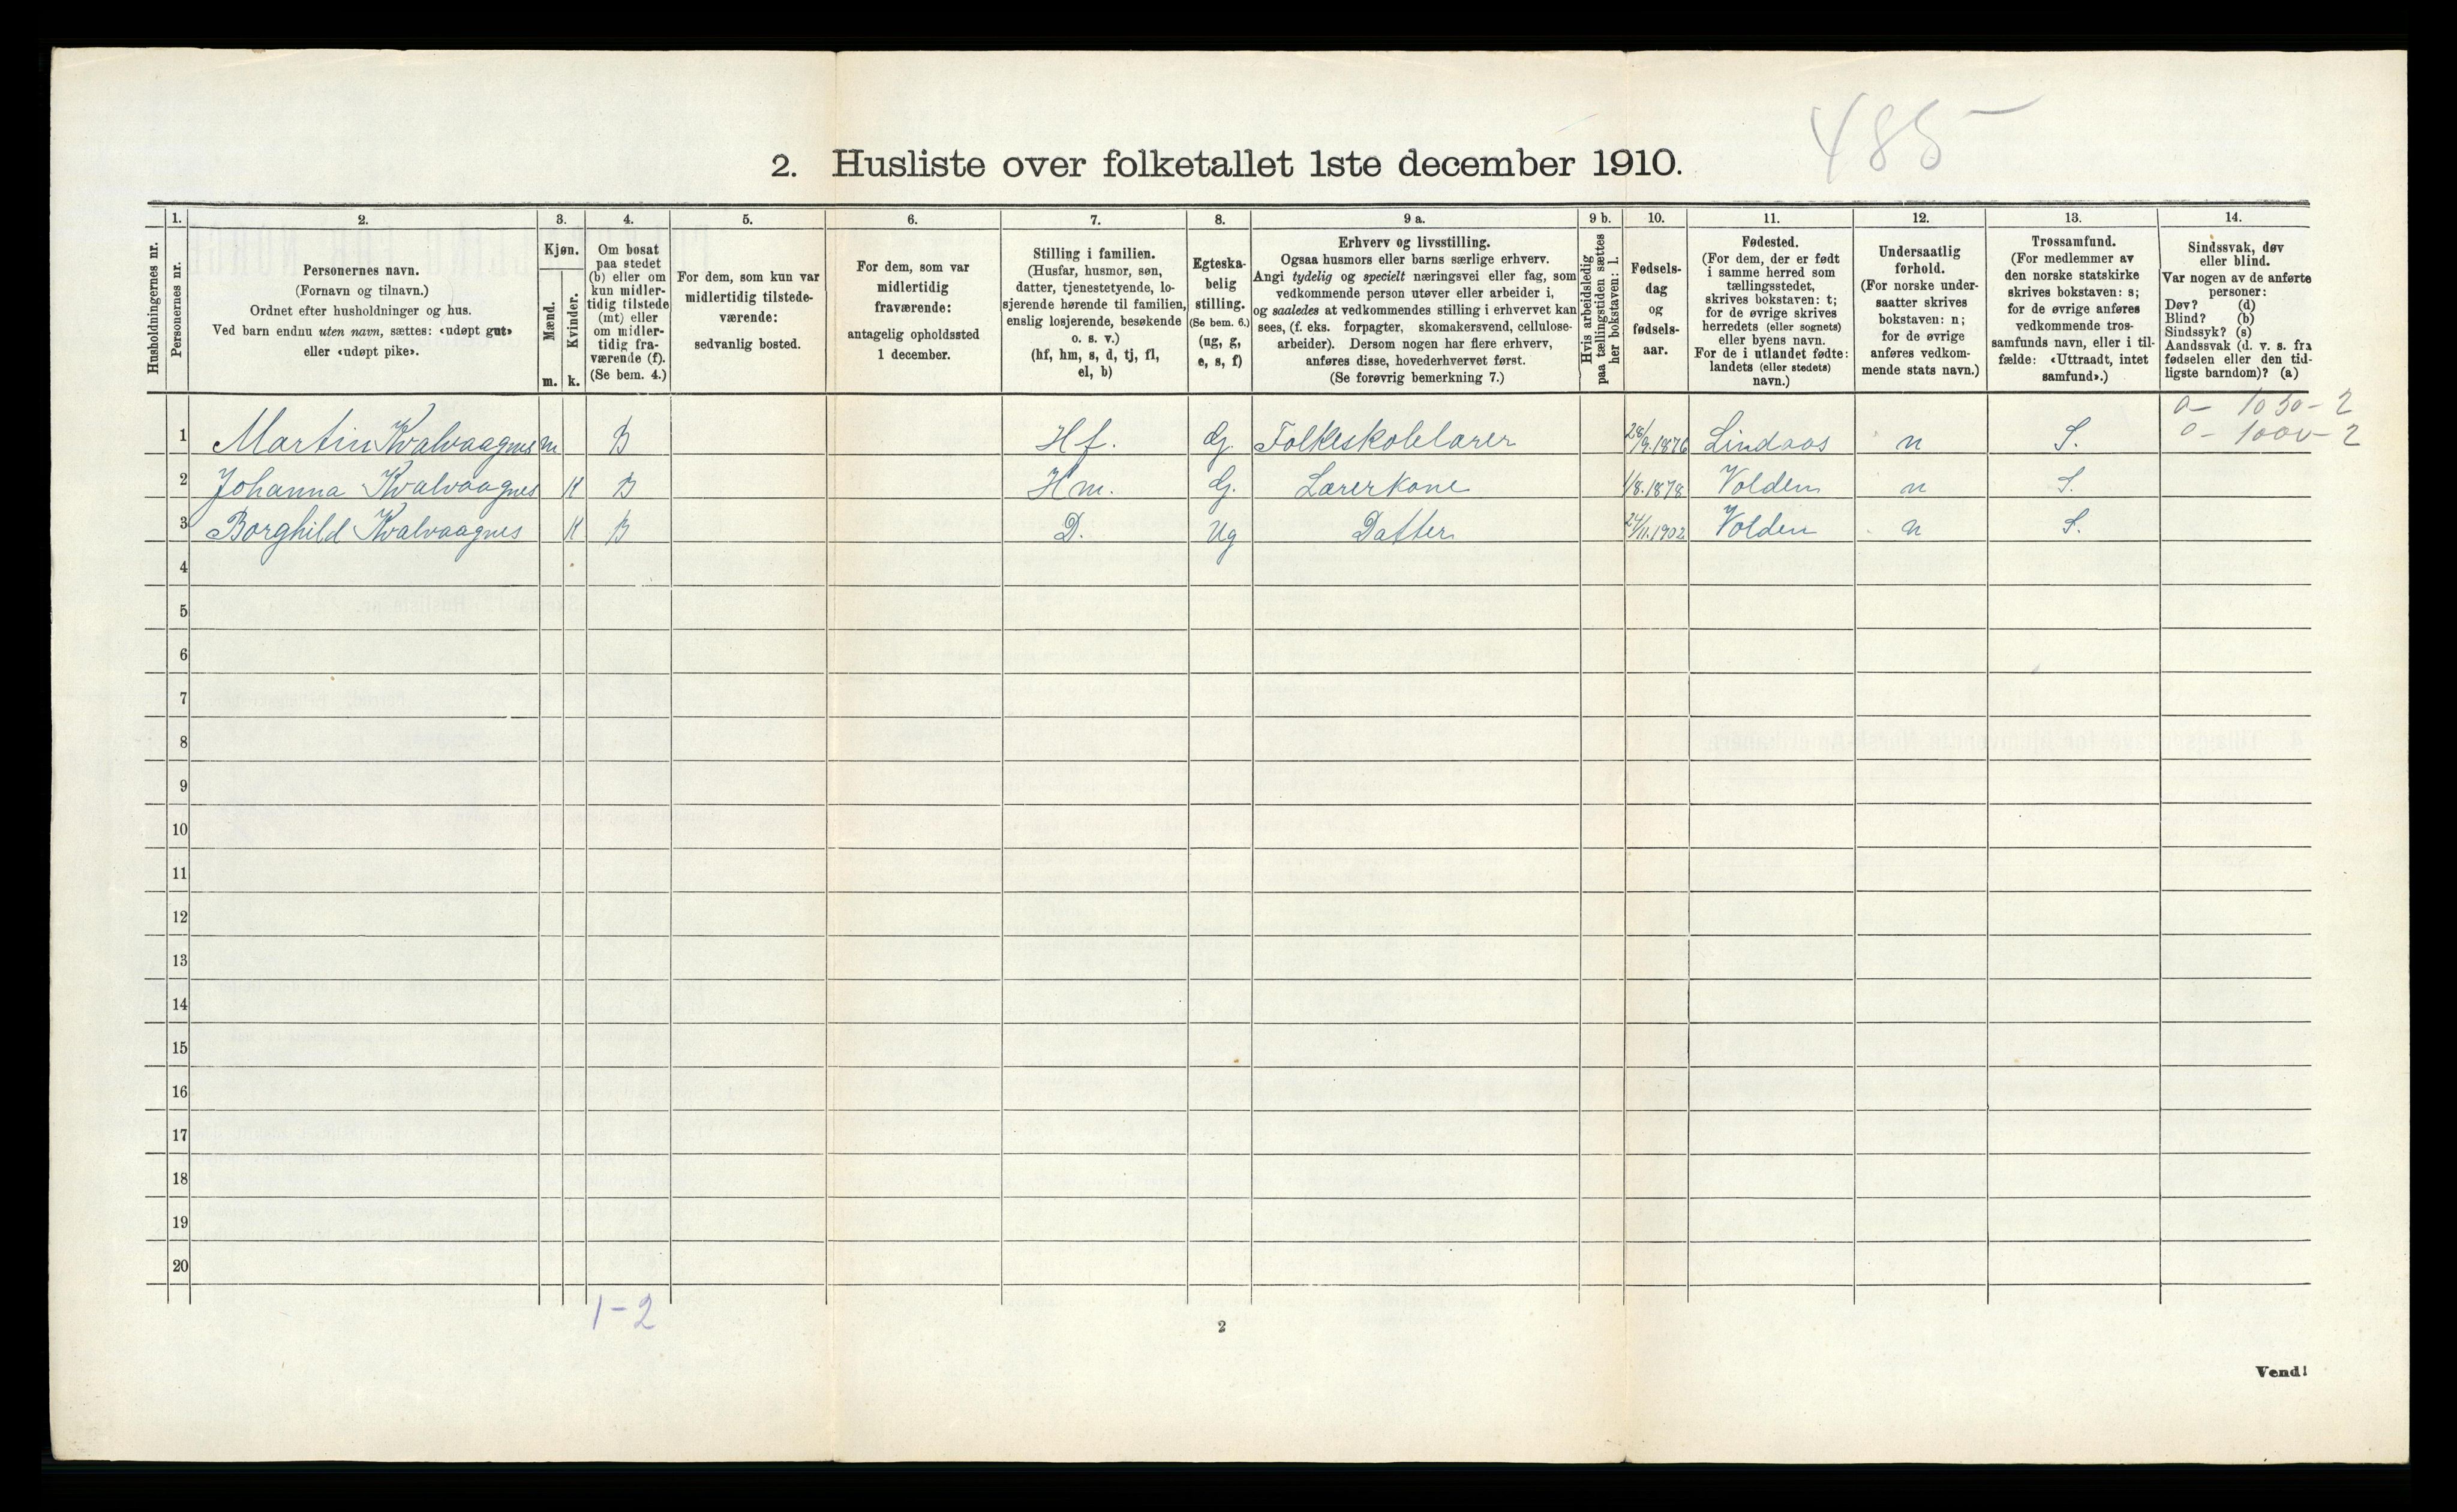 485-
2. Husliste over folketallet 1ste december 1910.
Husholdningernes nr.
1.
Personernes nr.
2.
Personernes navn.
(Fornavn og tilnavn.)
Ordnet efter husholdninger og hus.
Ved barn endnu uten navn, sættes: «udøpt gut»
eller «udøpt pike».
3.
Kjøn.
Mænd.
m.
Kvinder.
k.
4.
Om bosat
paa stedet
(b) eller om
kun midler-
tidig tilstede
(mt) eller
om midler-
tidig fra-
værende (f).
(Se bem. 4.)
5.
For dem, som kun var
midlertidig tilstede-
værende:
sedvanlig bosted.
6.
For dem, som var
midlertidig
fraværende:
antagelig opholdssted
1 december.
7.
Stilling i familien.
(Husfar, husmor, søn,
datter, tjenestetyende, lo-
sjerende hørende til familien,
enslig losjerende, besøkende
o. s. v.)
(hf, hm, s, d, tj, fl,
el, b)
8.
Egteska-
belig
stilling.
(Se bem. 6.)
(ug, g,
e, s, f)
9 a.
Erhverv og livsstilling.
Ogsaa husmors eller barns særlige erhverv.
Angi tydelig og specielt næringsvei eller fag, som
vedkommende person utøver eller arbeider i,
og saaledes at vedkommendes stilling i erhvervet kan
sees, (f. eks. forpagter, skomakersvend, cellulose-
arbeider). Dersom nogen har flere erhverv,
anføres disse, hovederhvervet først.
(Se forøvrig bemerkning 7.)
9 b.
Hvis arbeidsledig
paa tællingstiden sættes
her bokstaven: l.
10.
Fødsels-
dag
og
fødsels-
aar.
11.
Fødested.
(For dem, der er født
i samme herred som
tællingsstedet,
skrives bokstaven: t;
for de øvrige skrives
herredets (eller sognets)
eller byens navn.
For de i utlandet fødte:
landets (eller stedets)
navn.)
12.
Undersaatlig
forhold.
(For norske under-
saatter skrives
bokstaven: n;
for de øvrige
anføres vedkom-
mende stats navn.)
13.
Trossamfund.
(For medlemmer av
den norske statskirke
skrives bokstaven: s;
for de øvrige anføres
vedkommende tros-
samfunds navn, eller i til-
fælde: «Uttraadt, intet
samfund».)
14.
Sindssvak, døv
eller blind.
Var nogen av de anførte
personer:
Døv? (d)
Blind? (b)
Sindssyk? (s)
Aandssvak (d. v. s. fra
fødselen eller den tid-
ligste barndom)? (a)
0 - 1050 - 2
0 - 1000 - 2
1 Martin Kvalvaagnes m B Hf. G. Folkeskolelærer 28/9.1876 Lindaas n S.
2 Johanna Kvalvaagnes K B Hm. G. Lærerkone 1/8.1878 Volden n S.
3 Borghild Kvalvaagnes K B D. Ug Datter 24/11.1902 Volden n S.
4
5
6
7
8
9
10
11
12
13
14
15
16
17
18
19
20
1-2
2
Vend!